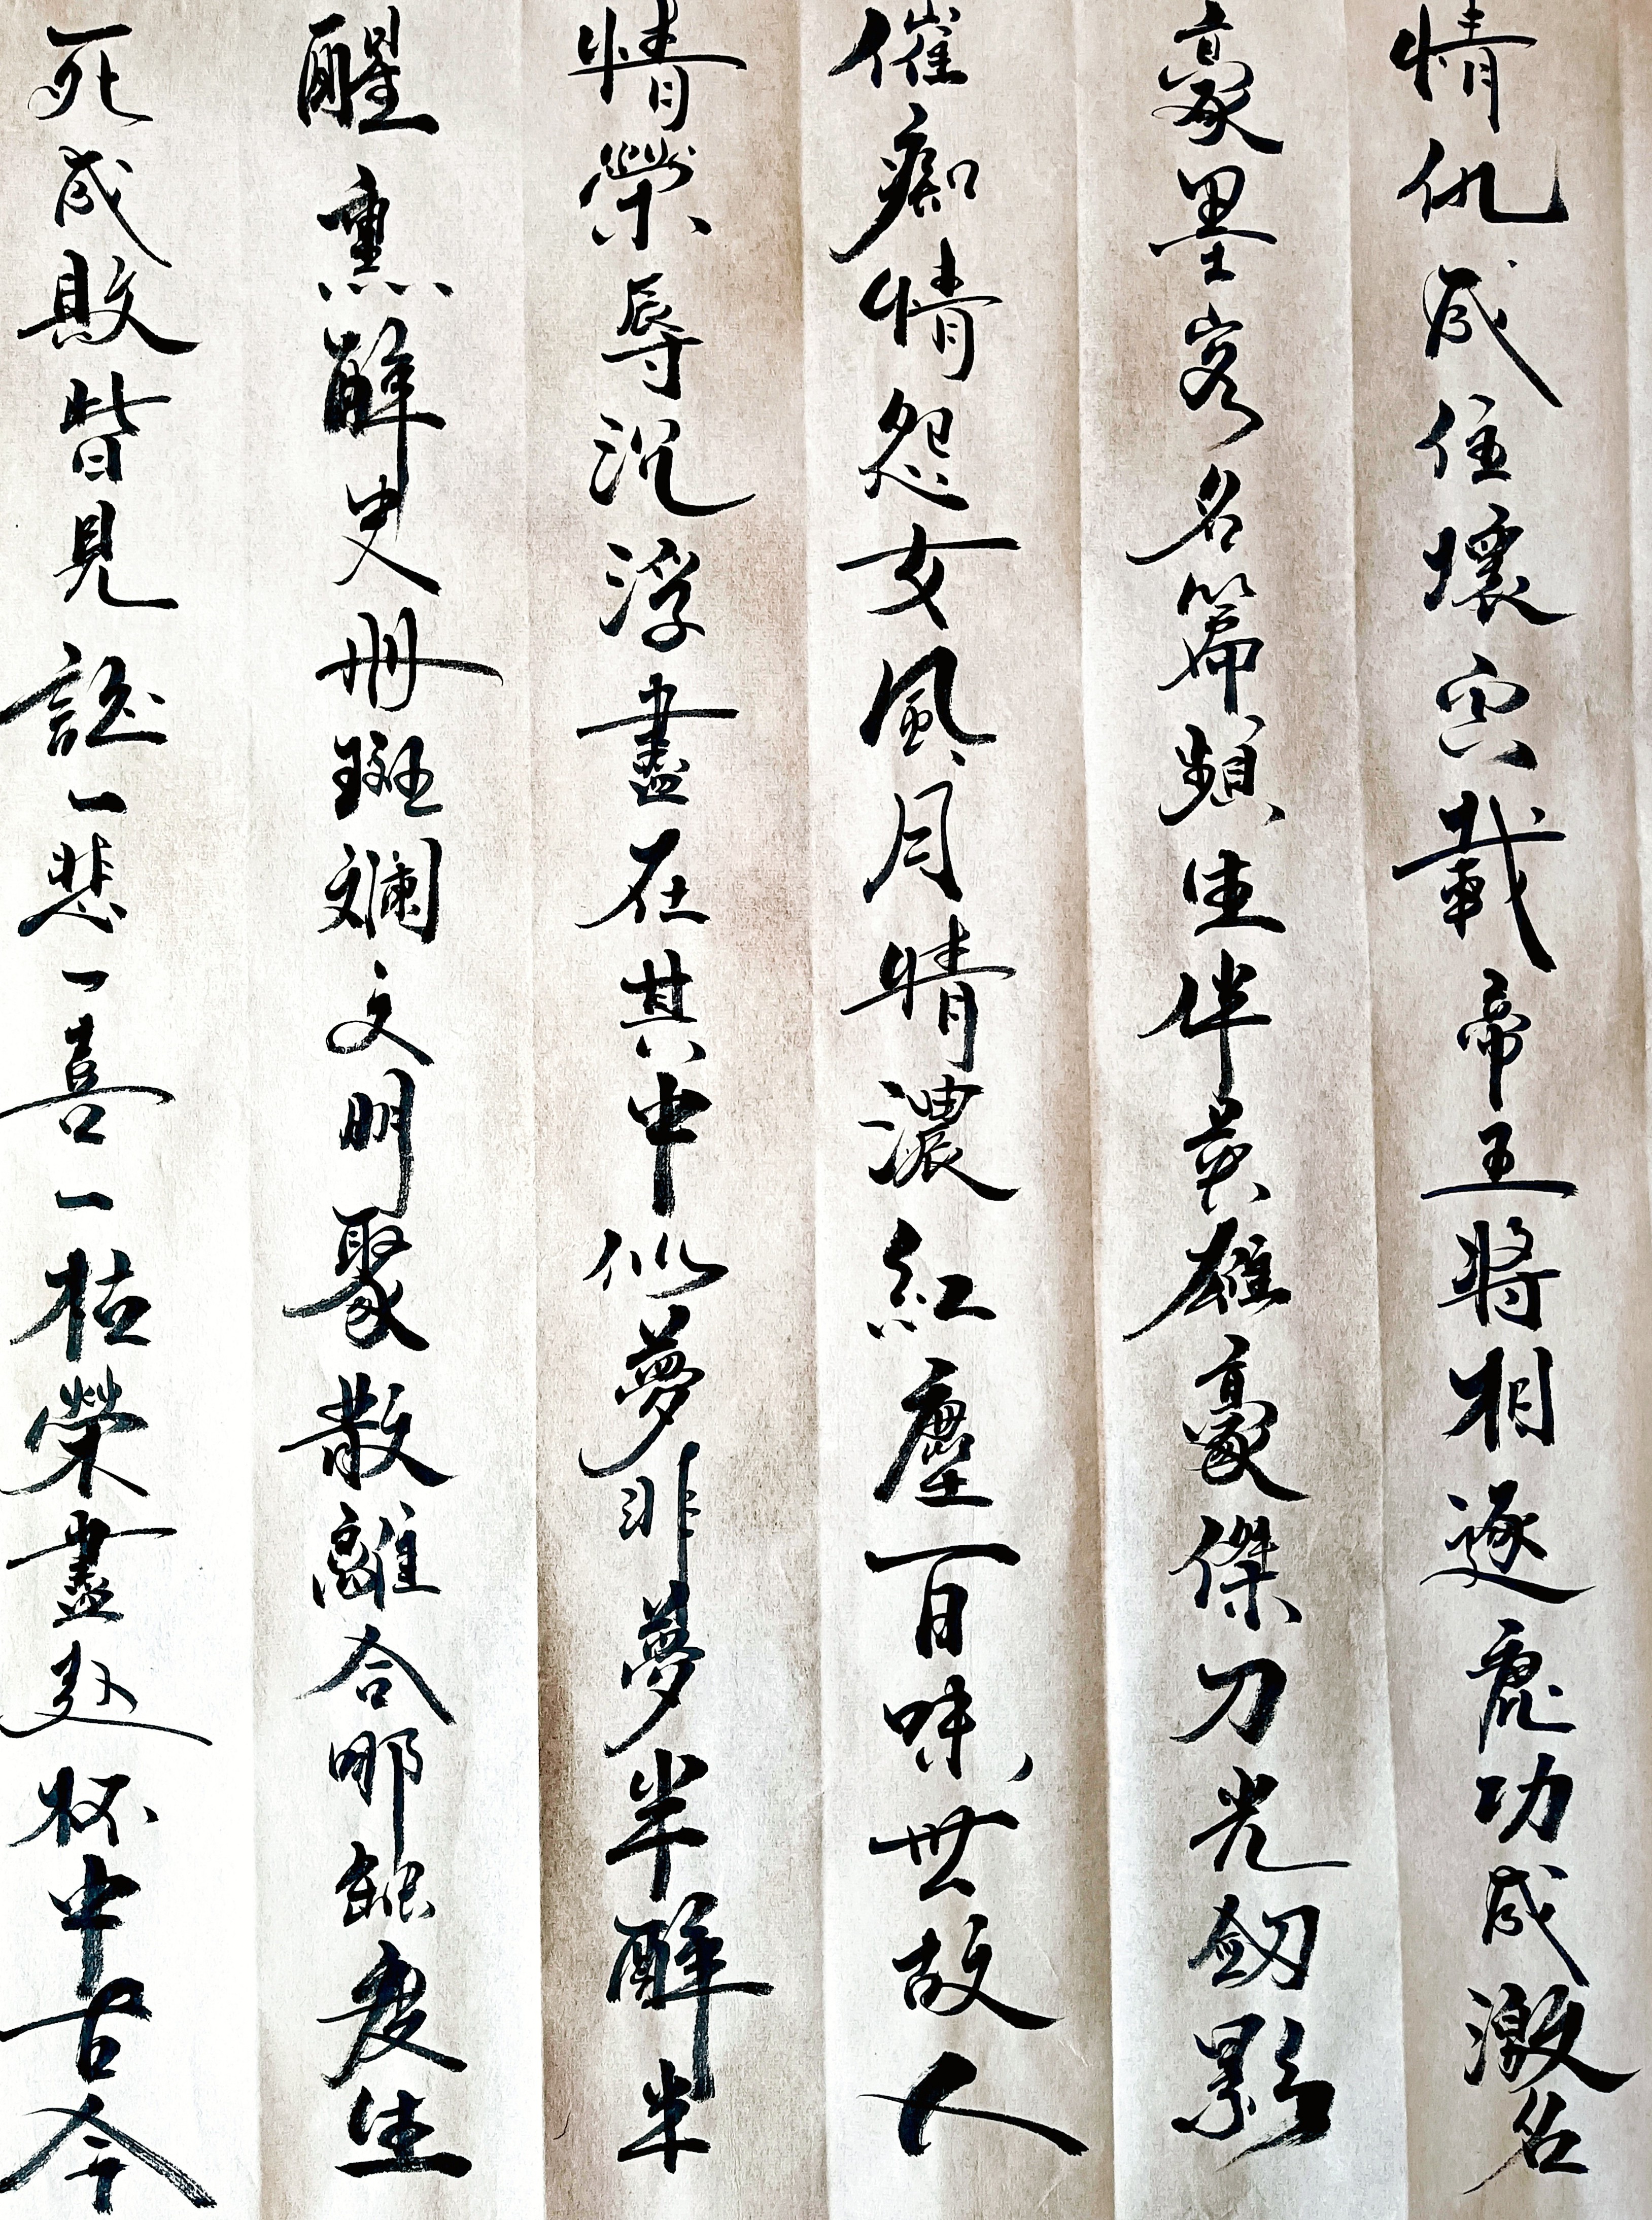 情仇成住壞空載帝王將相逐鹿功成激名
豪墨客名篇頻生伴英雄豪傑刀光劒影
催痴情怨女風月情濃紅塵百味世故人
情榮辱沉浮盡在其中似夢非夢半醉半
醒熏醉史册斑斕文明聚散離合哪能度生
死成敗皆見證一悲一喜一枯榮盡赴杯中古今